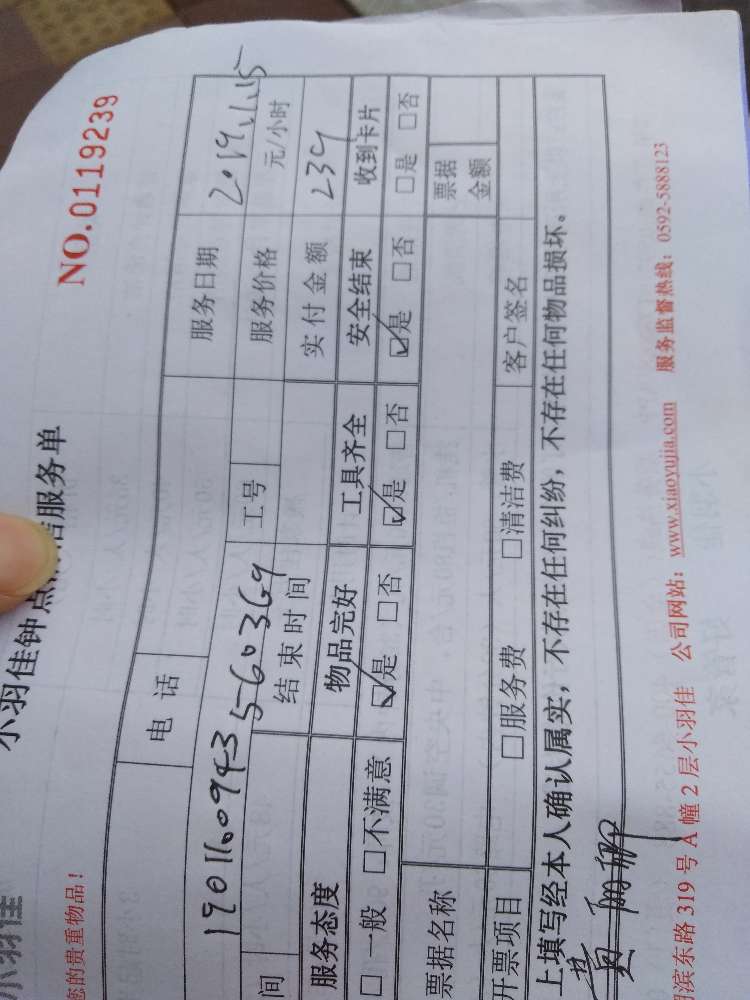 小羽佳
NO.0119239
小羽佳钟点清洁服务单
您的贵重物品！
电话 服务日期 2019.11.15
190116094356 60369 工号 服务价格 元/小时
间 结束时间 实付金额 239
服务态度 物品完好 工具齐全 安全结束 收到卡片
□一般 □不满意 ☑是 □否 ☑是 □否 ☑是 □否 □是 □否
票据名称 票据金额
开票项目 □服务费 □清洁费 客户签名
上填写经本人确认属实，不存在任何纠纷，不存在任何物品损坏。
滨东路319号A幢2层小羽佳 公司网站：www.xiaoyujia.com 服务监督热线：0592-5888123